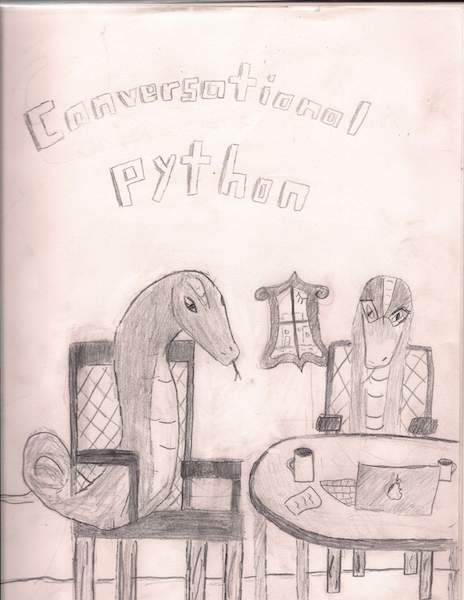 Conversational
Python